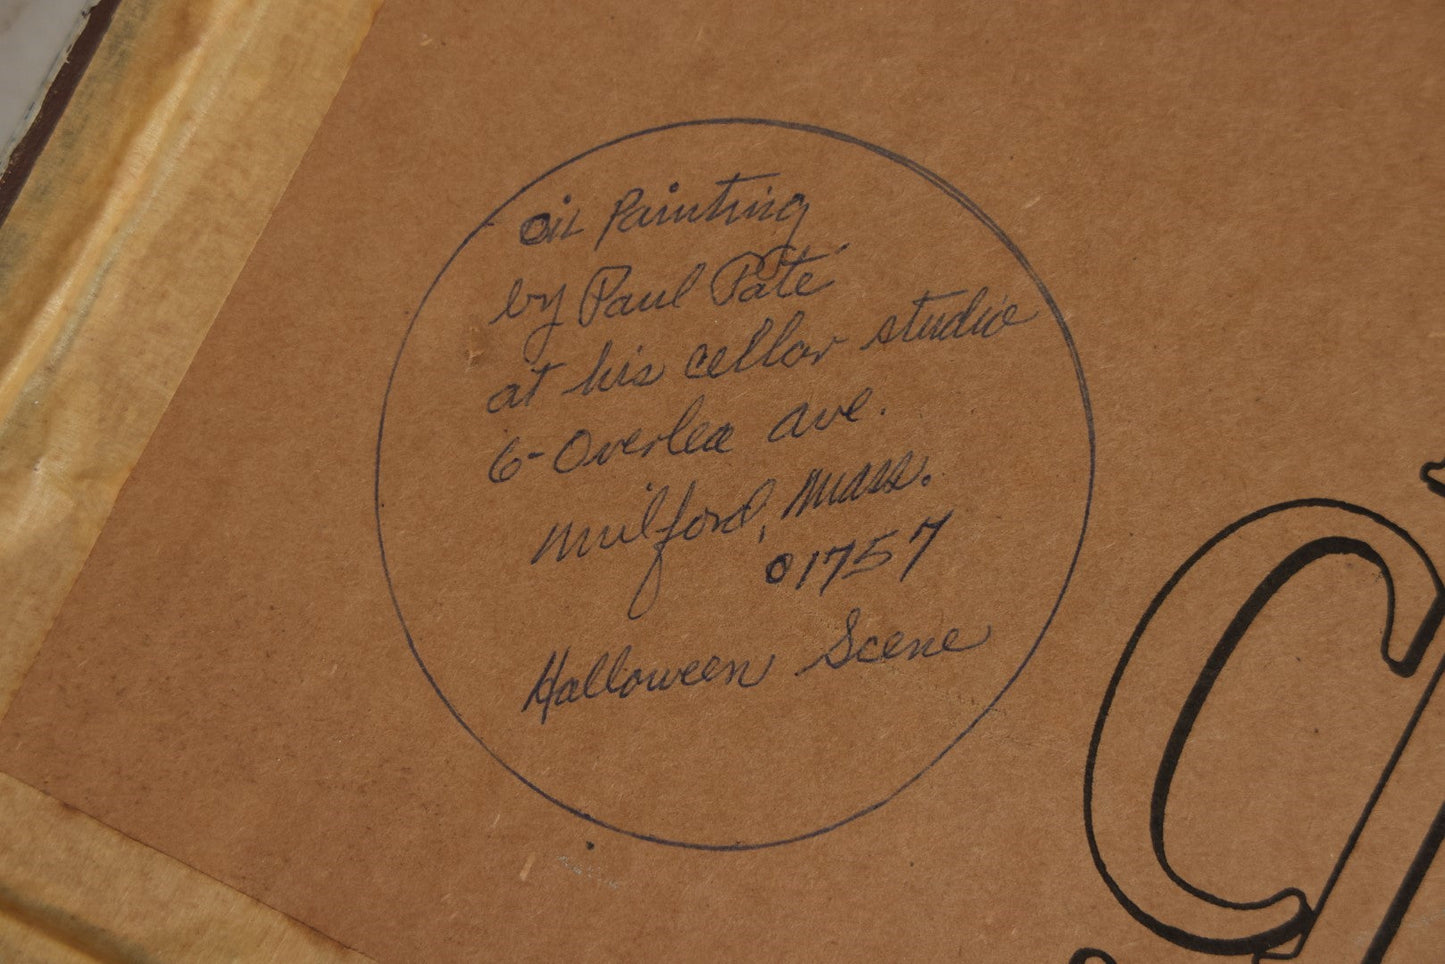 Oil Painting
by Paul Pate
at his cellar studio
6-Overlea ave.
Milford, Mass.
01757
Halloween Scene